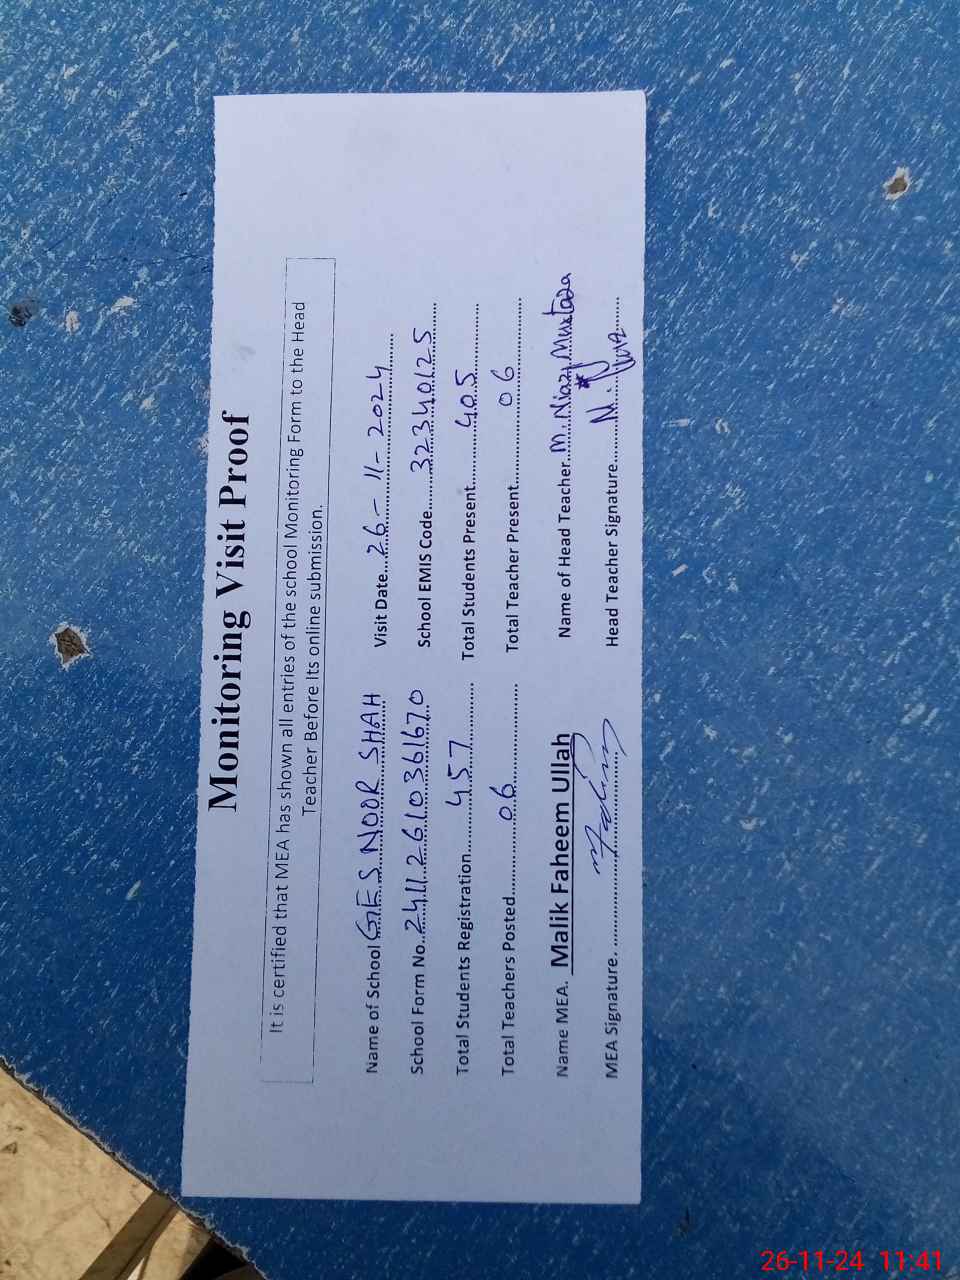 Monitoring Visit Proof
It is certified that MEA has shown all entries of the school Monitoring Form to the Head
Teacher Before Its online submission.
Name of School GES NOOR SHAH Visit Date 26-11-2024
School Form No. 2411261036 1670 School EMIS Code 32340125
Total Students Registration 457 Total Students Present 405
Total Teachers Posted 06 Total Teacher Present 06
Name MEA. Malik Faheem Ullah Name of Head Teacher M. Niaz Murtaza
MEA Signature. Head Teacher Signature
26-11-24 11:41